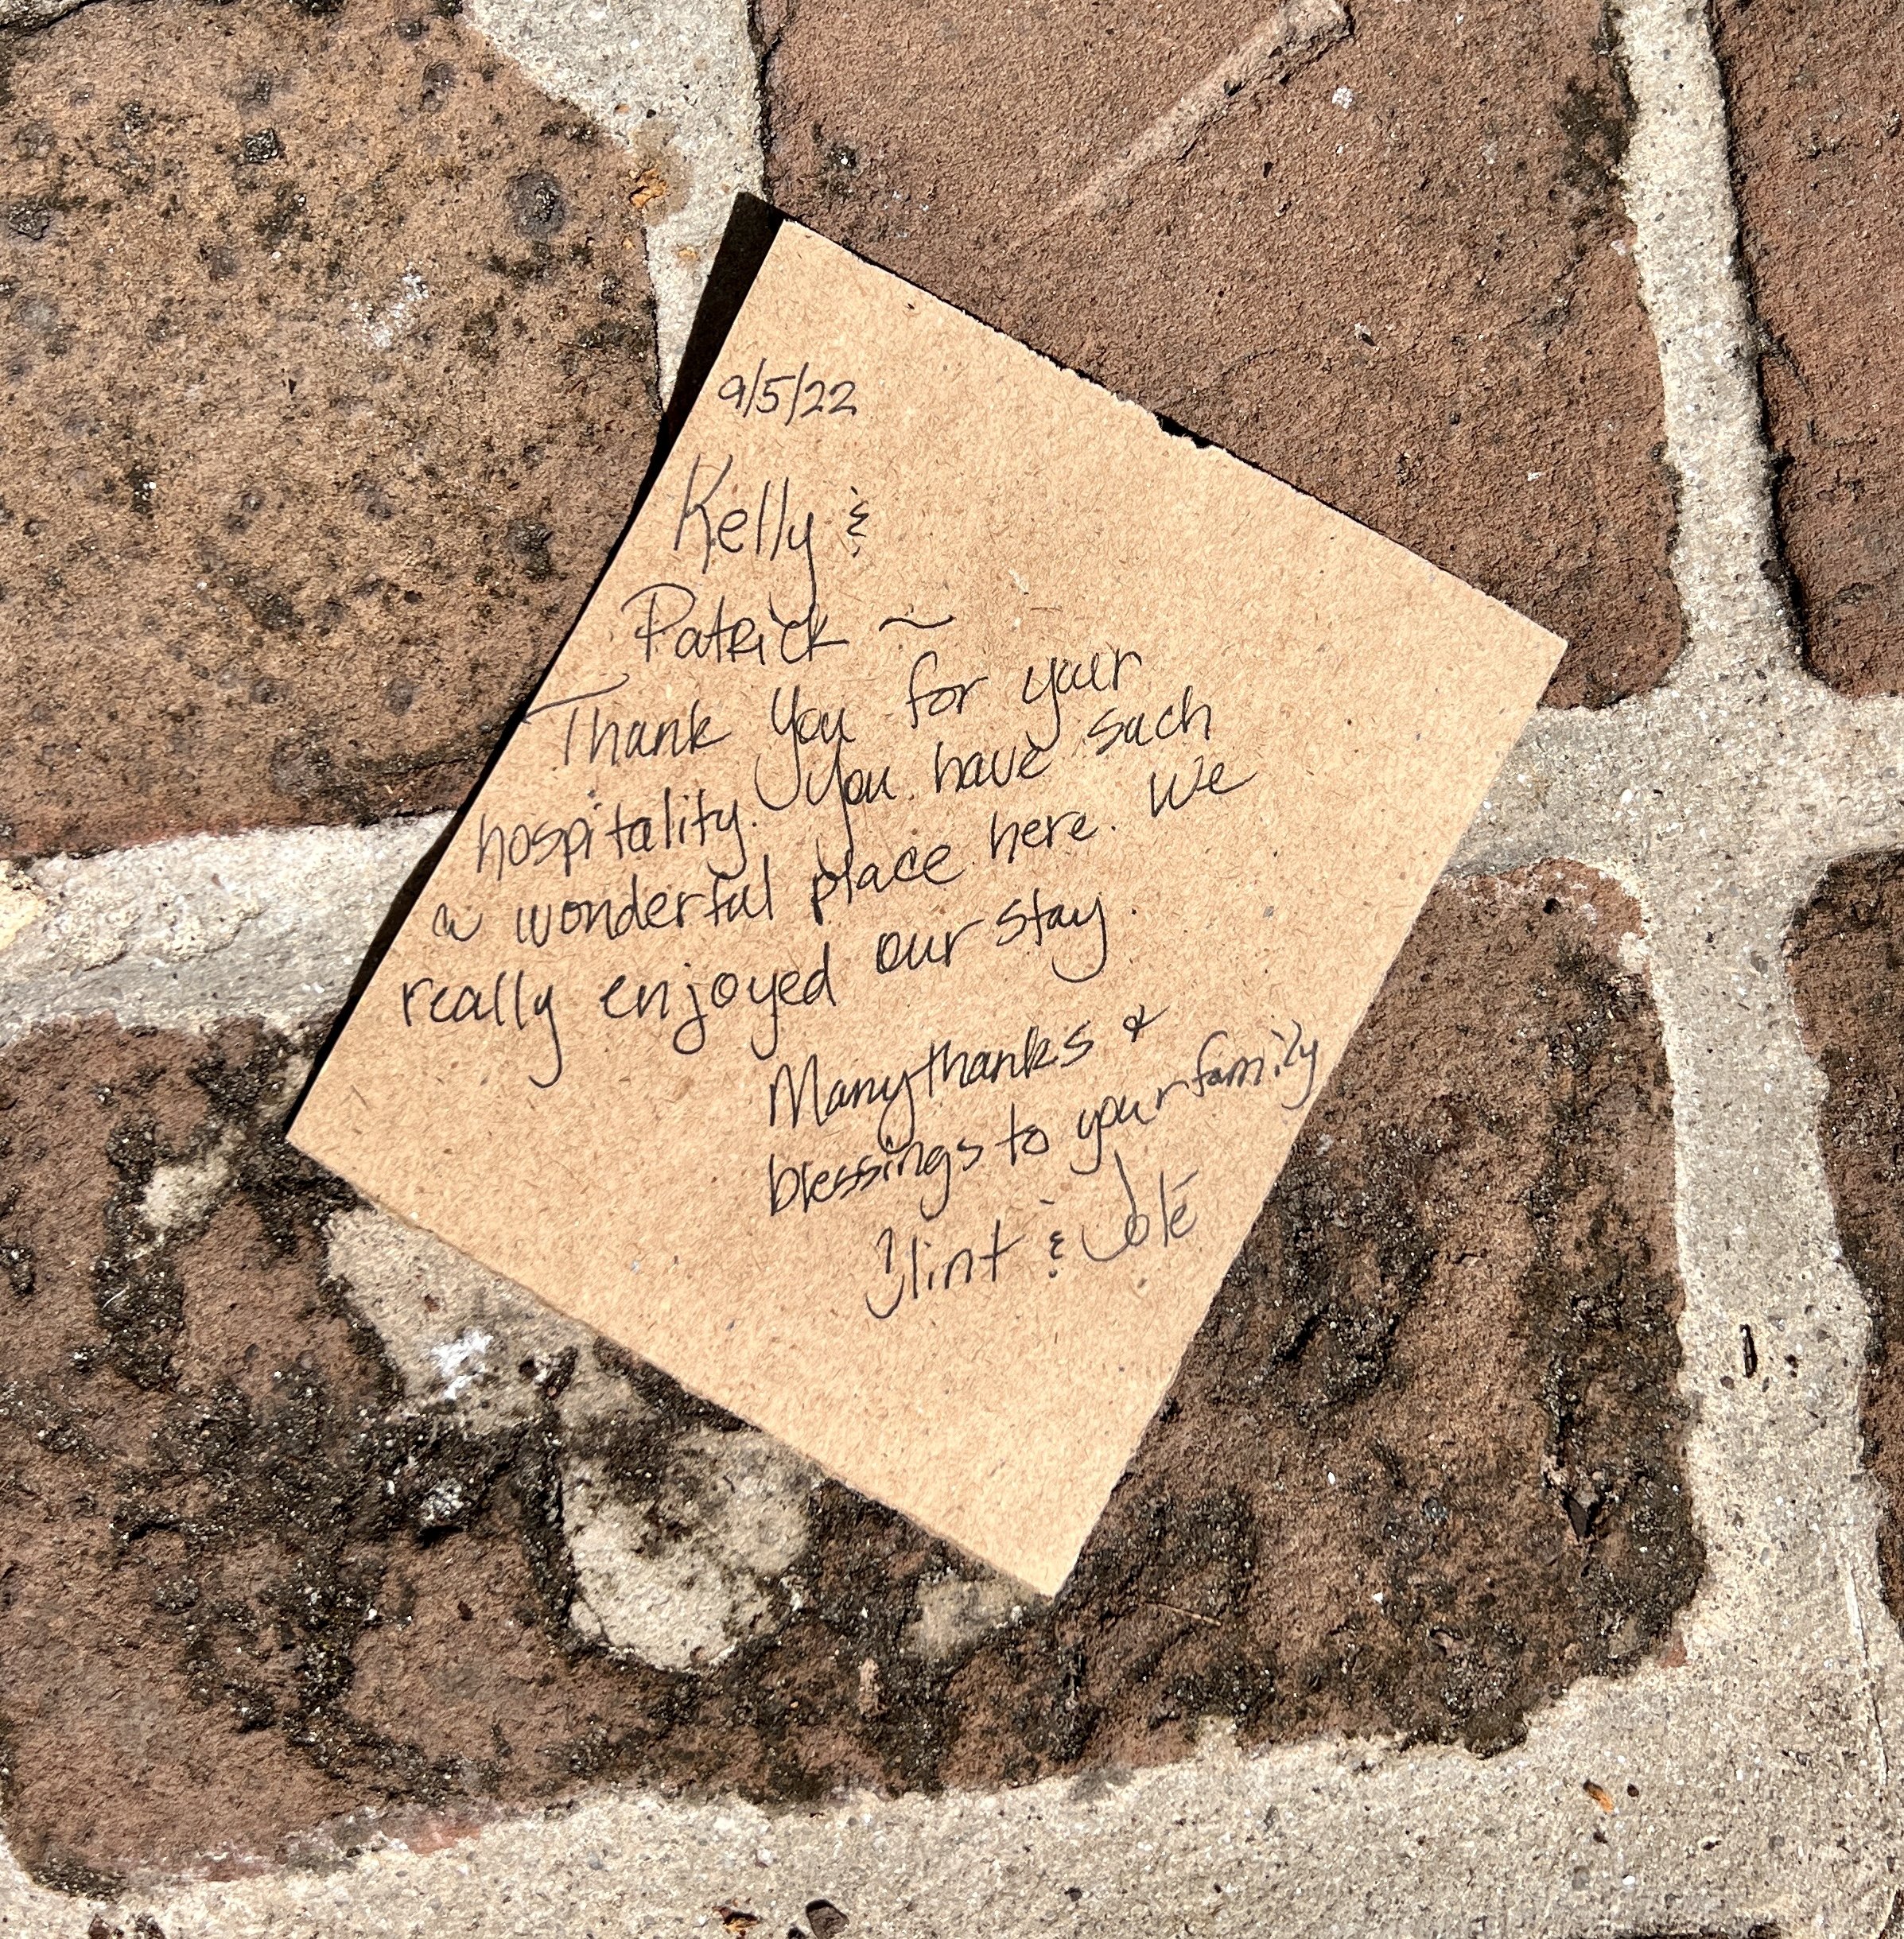 9/5/22
Kelly &
Patrick ~
Thank you for your
hospitality. You have such
a wonderful place here. We
really enjoyed our stay.
Many thanks &
blessings to your family
Clint & Jolé